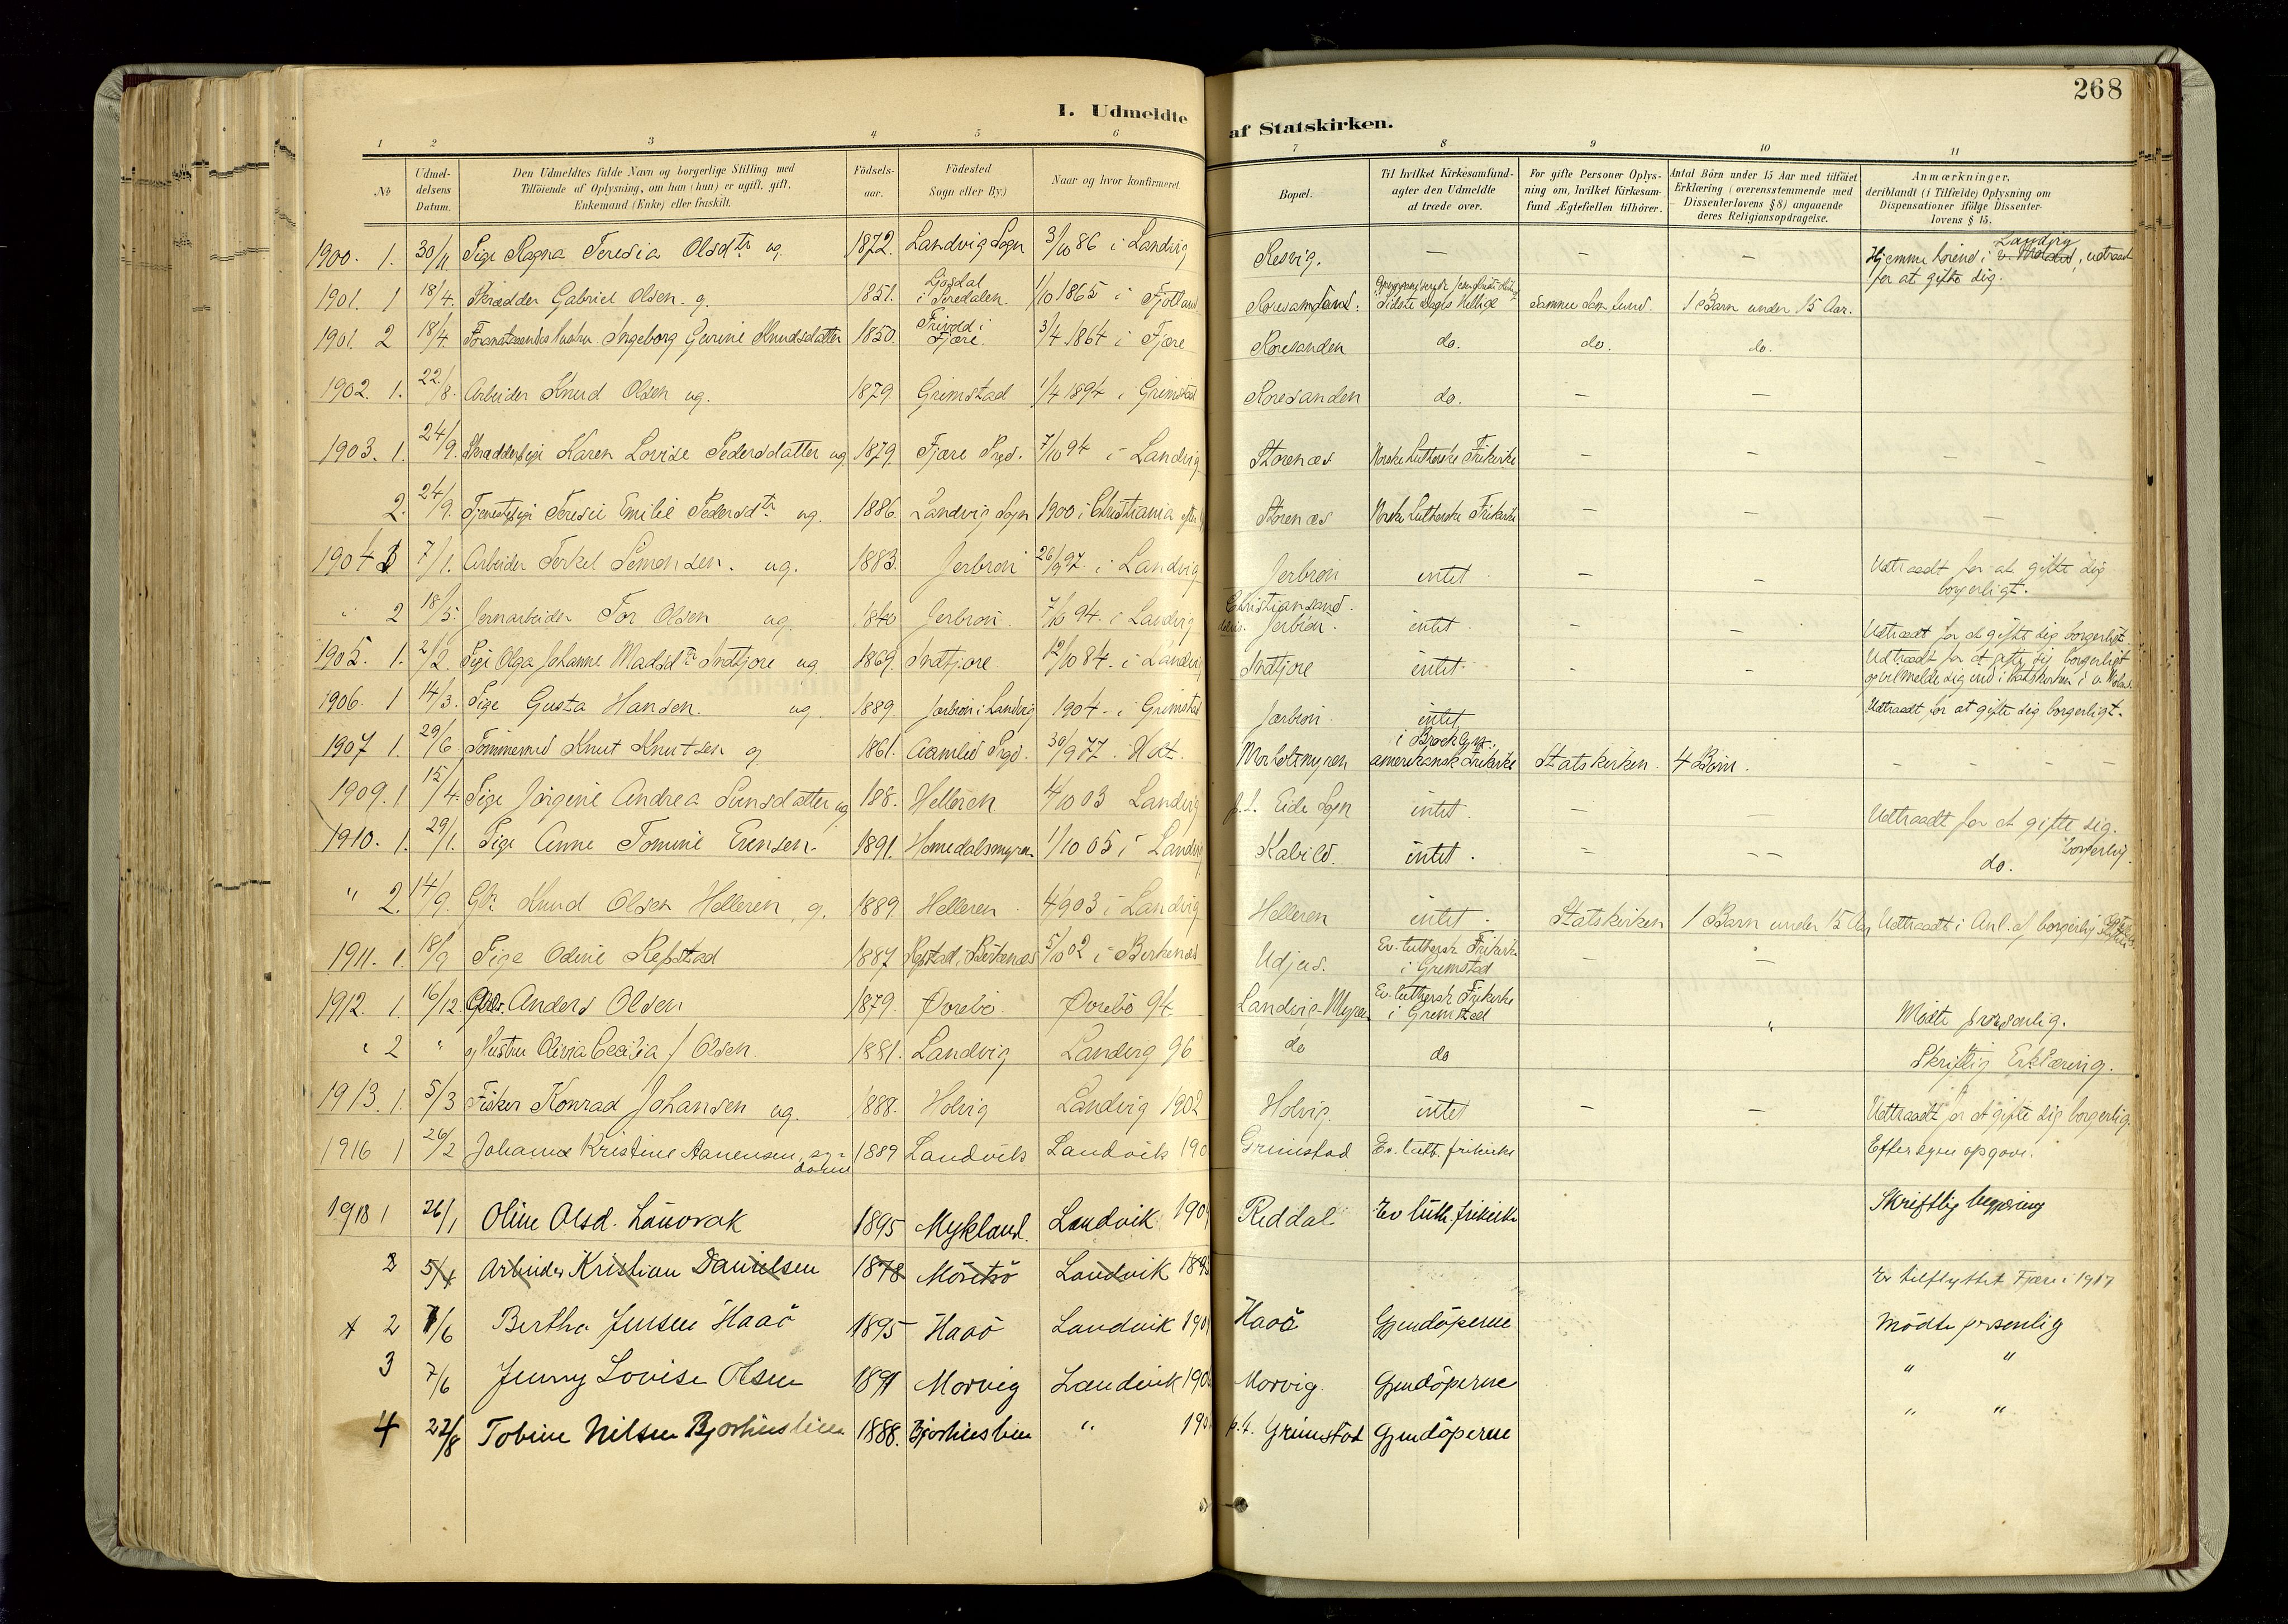 268
I. Udmeldte af Statskirken.
1 2 3 4 5 6 7 8 9 10 11
No
Udmeldelsens Datum.
Den Udmeldtes fulde Navn og borgerlige Stilling med Tilföiende af Oplysning, om han (hun) er ugift, gift, Enkemand (Enke) eller fraskilt.
Födselsaar.
Födested Sogn eller By.)
Naar og hvor konfirmeret
Bopæl.
Til hvilket Kirkesamfund agter den Udmeldte at træde over.
For gifte Personer Oplysning om, hvilket Kirkesamfund Ægtefællen tilhörer.
Antal Börn under 15 Aar med tilföiet Erklæring (overensstemmende med Dissenterlovens § 8) angaaende deres Religionsopdragelse.
Anmærkninger, deriblandt (i Tilfælde) Oplysning om Dispensationer ifölge Dissenterlovens § 15.
1900. 1. 30/11 Pige Ragna Teresia Olsdtr ug. 1872. Landvig Sogn 3/10 86 i Landvig Resvig. — — — Hjemmehörend i Landvig, udtraadt for at gifte sig.
1901. 1 18/4. Skrædder Gabriel Olsen. g. 1851. i Siredalen. 1/10 1865 i Fjotland Roresanden. Sidste Dages Hellige Samme Samfund. 1 Barn under 15 Aar.
1901. 2 18/4. Hustru Ingeborg Gurine Knudsdatter 1850. Frivold i Fjære. 3/4 1864 i Fjære Roresanden do. do. do.
1902. 1. 22/8. Arbeider Knud Olsen ug. 1879. Grimstad 1/4 1894 i Grimstad Roresanden do. — —
1903. 1. 24/9. Karen Lovise Pedersdatter ug 1879. Fjære Prgd. 7/10 94 i Landvig Storenæs Norske Lutherske Frikirke — — —
2. 24/9. Tjenestepige Teresie Emilie Pedersdtr ug. 1886. Landvig Sogn 1900 i Christiania Storenæs Norske Lutherske Frikirke — —
1904 1 7/1. Arbeider Terkel Simonsen. ug. 1883. Jerbron 26/9 97. i Landvig Jerbron intet. — — Udtraadt for at gifte sig borgerligt.
" 2 18/5. Jernarbeider Tor Olsen ug 1840 Jerbron. 7/10 94. i Landvig Christiansand. Jerbron. intet. — — Udtraadt for at gifte sig borgerligt
1905. 1. 2/2. Pige Olga Johanne Madsdtr Indtjore ug 1869. Indtjore 12/10 84. i Landvig Indtjore intet. — — Udtraadt for at gifte sig borgerligt og vil melde sig ind i Statskirken i
1906. 1 14/3. Pige Gusta Hansen. ug. 1889. Jærbron i Landvig 1904. i Grimstad Jærbron. intet — — Udtraadt for at gifte sig borgerligt.
1907 1. 29/6. Tömmermd Knut Knutsen g 1861. Aamlid Prgd. 30/9 77. Holt. Morholtmyren i Brooklyn: amerikansk Frikirke Statskirken. 4 Börn. — — — —
1909. 1 15/4. Pige Jörgine Andrea Sunsdatter ug 188. Helleren 4/10 03 Landvig p.t. Eide Sogn intet. — — Udtraadt for at gifte sig. borgerlig.
1910. 1. 29/1. Pige Anne Tomine Evensen. 1891. Homedalsmyren 1/10 05 i Landvig Kalvild. intet. — — do.
" 2. 14/9. Knud Olsen Helleren, g. 1889. Helleren 4/9 03 i Landvig Helleren intet. Statskirken 1 Barn under 15 Aar Udtraadt i Anl. af borgerlig
1911. 1. 18/9 Pige Odine Repstad 1887 Repstad, Birkenæs 5/10 02 i Birkenæs Udjus. Ev. luthersk Frikirke i Grimstad — —
1912. 1. 16/12. Anders Olsen 1879. Övrebö. Övrebö 94 Landvig-Myren Ev. luthersk Frikirke i Grimstad " Mödte personlig.
" 2 " og Hustru Olivia Cecilia J Olsen 1881. Landvig Landvig 96 do do Skriftlig Erklæring.
1913. 1. 5/3 Fisker Konrad Johansen ug. 1888. Holvig Landvig 1902 Holvig. intet — — Udtraadt for at gifte sig borgerlig.
1916 1 26/2 Johanna Kristine Aanensen, 1889 Landvik Landvik 190 Grimstad Ev. luth. frikirke Efter egen opgave.
1918 1 26/1 Oline Olsd. Lauvrak 1895 Mykland. Landvik 190 Reddal Ev luth. frikirke Skriftlig begjæring
2 5/4 Arbeider Kristian Danielsen 1878 Moretrö Landvik 189 Er tilflyttet Fjære i 1917
+ 2 7/6 Bertha Jensen Haaö 1895 Haaö Landvik 190 Haaö Gjendöperne Mödte personlig
3 7/6 Jenny Lovise Olsen 1891 Morvig Landvik 190 Morvig. Gjendöperne " "
4 22/8 Tobine Nilsen Bjorkestien 1888. Bjorkestien " 190 p.t. Grimstad Gjendöperne " "